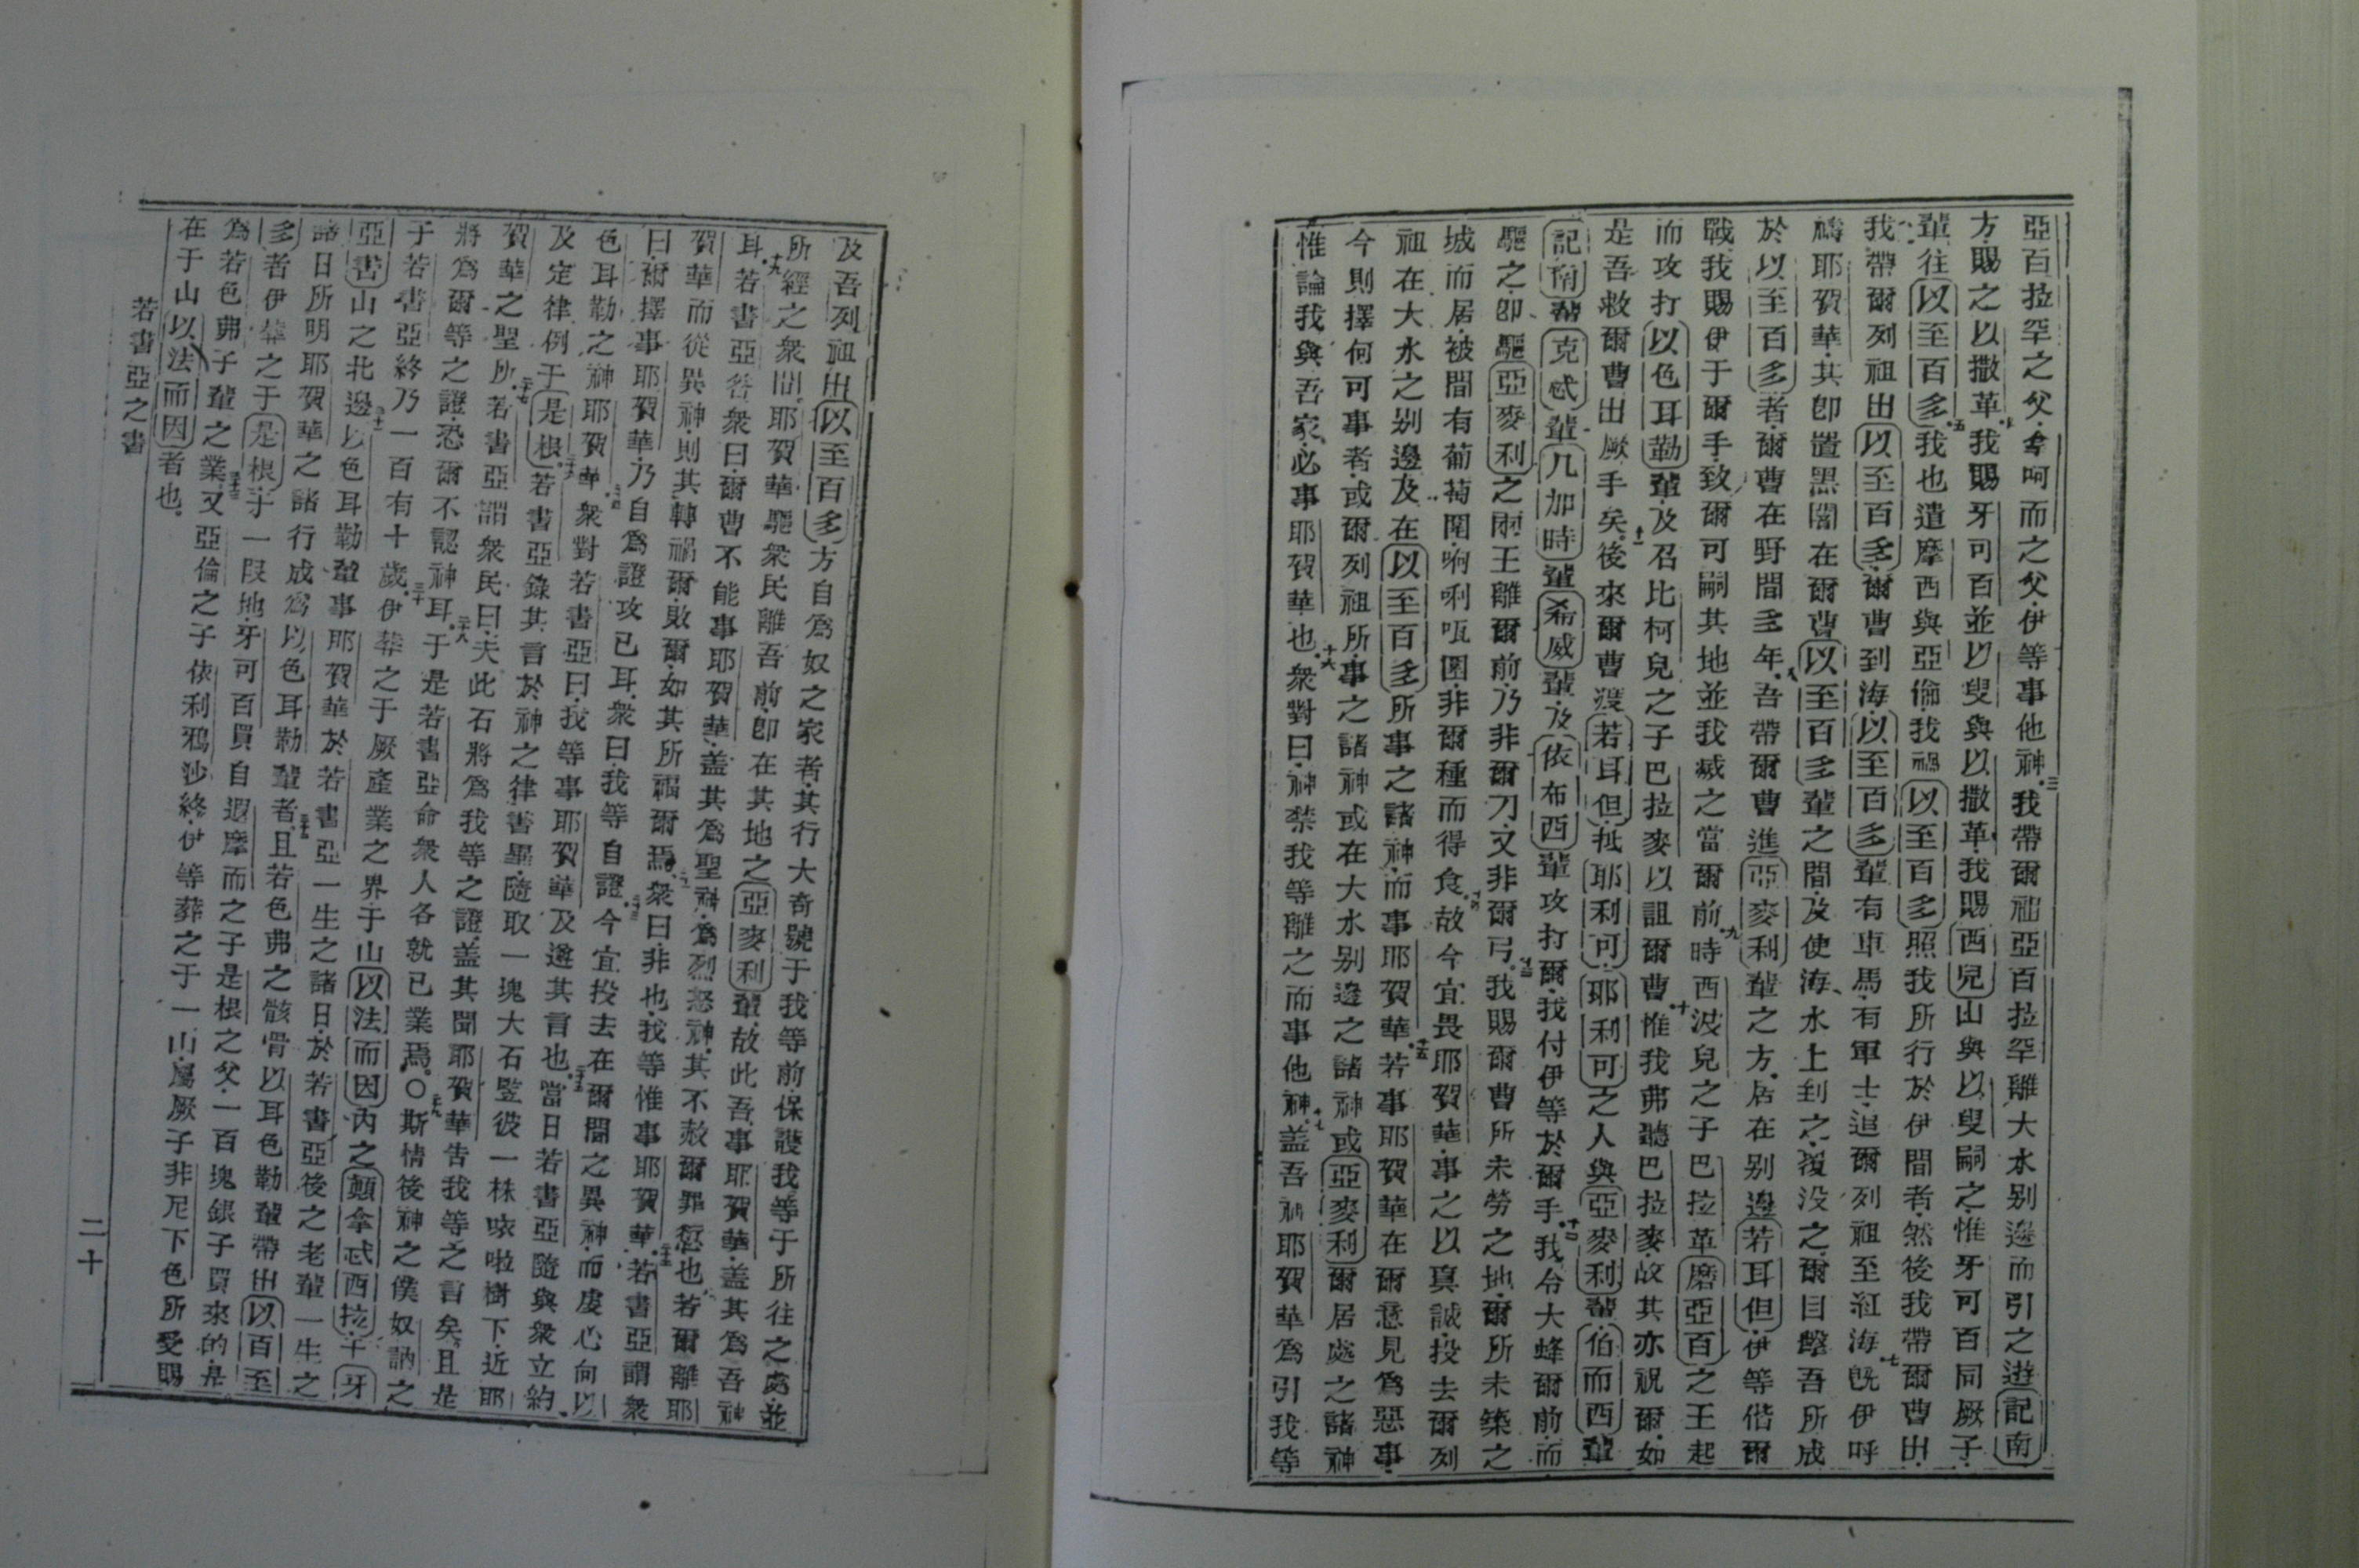 亞百拉罕之父拿呵而之父伊等事他神三我帶爾祖亞百拉罕離大水別邊而引之遊記南
方賜之以撒革四我賜牙可百並以叟與以撒革我賜西兒山與以叟嗣之惟牙可百同厥子
輩往以至百多五我也遣摩西與亞倫我禍以至百多照我所行於伊間者然後我帶爾曹出
六我帶爾列祖出以至百多爾曹到海以至百多輩有車馬有軍士追爾列祖至紅海七旣伊呼
禱耶賀華其卽置黑闇在爾曹以至百多輩之間及使海水上到之覆没之爾目盤吾所成
於以至百多者爾曹在野間多年八吾帶爾曹進亞麥利輩之方居在别邊若耳但伊等偕爾
戰我賜伊于爾手致爾可嗣其地並我滅之當爾前九時西波兒之子巴拉革磨亞百之王起
而攻打以色耳勒輩及召比柯兒之子巴拉麥以詛爾曹十惟我弗聽巴拉麥故其亦祝爾如
是吾救爾曹出厥手矣十一後來爾曹渡若耳但抵耶利可耶利可之人與亞麥利輩伯而西輩
記南輩克忒輩几加時輩希威輩及依布西輩攻打爾我付伊等於爾手十二我令大蜂爾前而
驅之卽驅亞麥利之兩王離爾前乃非爾刀又非爾弓十三我賜爾曹所未勞之地爾所未築之
城而居被間有葡萄園啊唎咓園非爾種而得食十四故今宜畏耶賀華事之以真誠投去爾列
祖在大水之别邊及在以至百多所事之諸神而事耶賀華十五若事耶賀華在爾意見爲惡事
今則擇何可事者或爾列祖所事之諸神或在大水别邊之諸神或亞麥利爾居處之諸神
惟論我與吾家必事耶賀華也十六衆對曰神禁我等離之而事他神十七盖吾神耶賀華爲引我等
及吾列祖出以至百多方自爲奴之家者其行大奇號于我等前保護我等于所往之處並
所經之衆間十八耶賀華驅衆民離吾前卽在其地之亞麥利輩故此吾事耶賀華盖其爲吾神
耳十九若書亞答衆曰爾曹不能事耶賀華盖其爲聖神爲烈怒神其不赦爾罪愆也二十若爾離耶
賀華而從異神則其轉禍爾敗爾如其所福爾焉二十一衆曰非也我等惟事耶賀華二十二若書亞謂衆
曰爾擇事耶賀華乃自爲證攻已耳衆曰我等自證二十三今宜投去在爾間之異神而虔心向以
色耳勒之神耶賀華二十四衆對若書亞曰我等事耶賀華及遵其言也二十五當日若書亞隨與衆立約
及定律例于是根二十六若書亞錄其言於神之律書畢隨取一塊大石竪彼一株咳啦樹下近耶
賀華之聖所二十七若書亞謂衆民曰夫此石將爲我等之證盖其聞耶賀華告我等之言矣且是
將爲爾等之證恐爾不認神耳二十八于是若書亞命衆人各就已業焉○二十九斯情後神之僕奴訥之
子若書亞終乃一百有十歲三十伊葬之于厥產業之界于山以法而因內之顛拿忒西拉于牙
亞書山之北邊三十一以色耳勒輩事耶賀華於若書亞一生之諸日於若書亞後之老輩一生之
諸日所明耶賀華之諸行成爲以色耳勒輩者三十二且若色弗之骸骨以耳色勒輩帶出以百至
多者伊葬之于是根于一叚地牙可百買自遐摩而之子是根之父一百塊銀子買來的是
爲若色弗子輩之業三十三又亞倫之子依利鴉沙終伊等葬之于一山屬厥子非尼下色所受賜
在于山以法而因者也
若書亞之書
二十